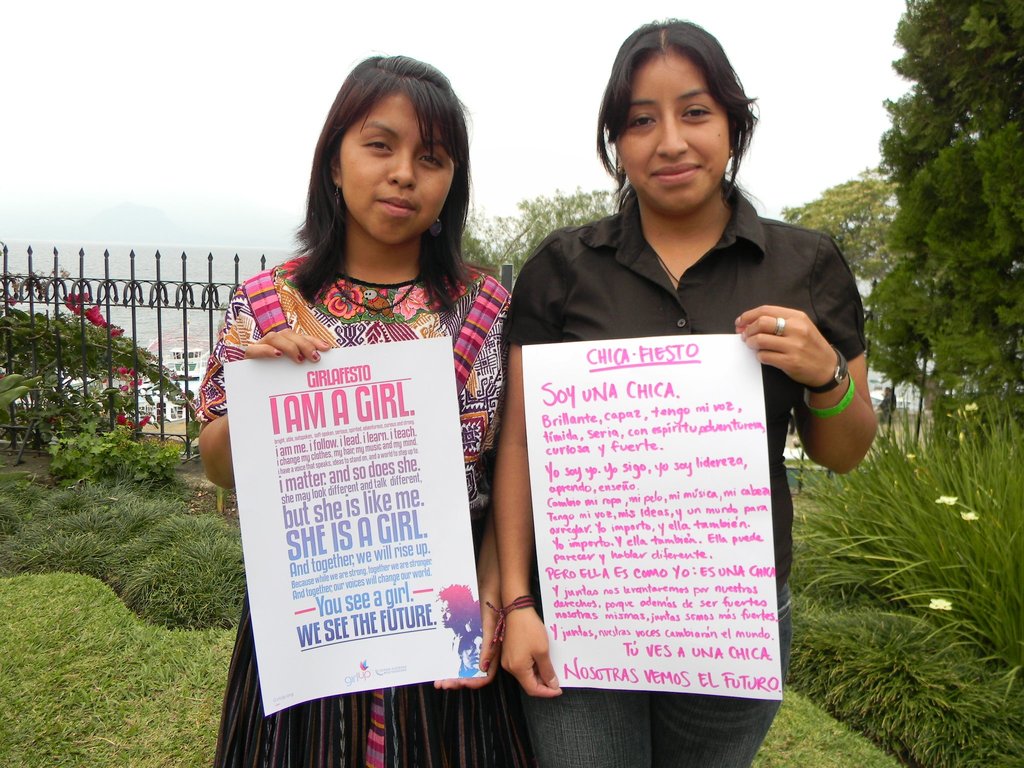 GIRLAFESTO
I AM A GIRL.
bright, able, outspoken, soft-spoken, serious, spirited, adventurous, curious and strong.
i am me. i follow. i lead. i learn. i teach.
i change my clothes, my hair my music and my mind.
i have a voice that speaks, ideas to stand on, and a world to step up to
i matter. and so does she.
she may look different and talk different,
but she is like me.
SHE IS A GIRL.
And together, we will rise up.
Because while we are strong, together we are stronger
And together, our voices will change our world.
You see a girl.
WE SEE THE FUTURE.
girlup
CHICA·FIESTO
SOY UNA CHICA.
Brillante, capaz, tengo mi voz,
tímida, seria, con espíritu adventurero,
curiosa y fuerte.
Yo soy yo. Yo sigo, yo soy lidereza,
aprendo, enseño.
Cambio mi ropa, mi pelo, mi música, mi cabeza
Tengo mi voz, mis ideas, y un mundo para
arregar. Yo importo, y ella también.
Yo importo. Y ella también. Ella puede
parecer y hablar diferente.
PERO ELLA ES COMO YO: ES UNA CHICA
Y juntas nos levantaremos por nuestros
derechos, porque además de ser fuertes
nosotras mismas, juntas somos más fuertes.
Y juntas, nuestras voces cambiarán el mundo.
TÚ VES A UNA CHICA.
NOSOTRAS VEMOS EL FUTURO.